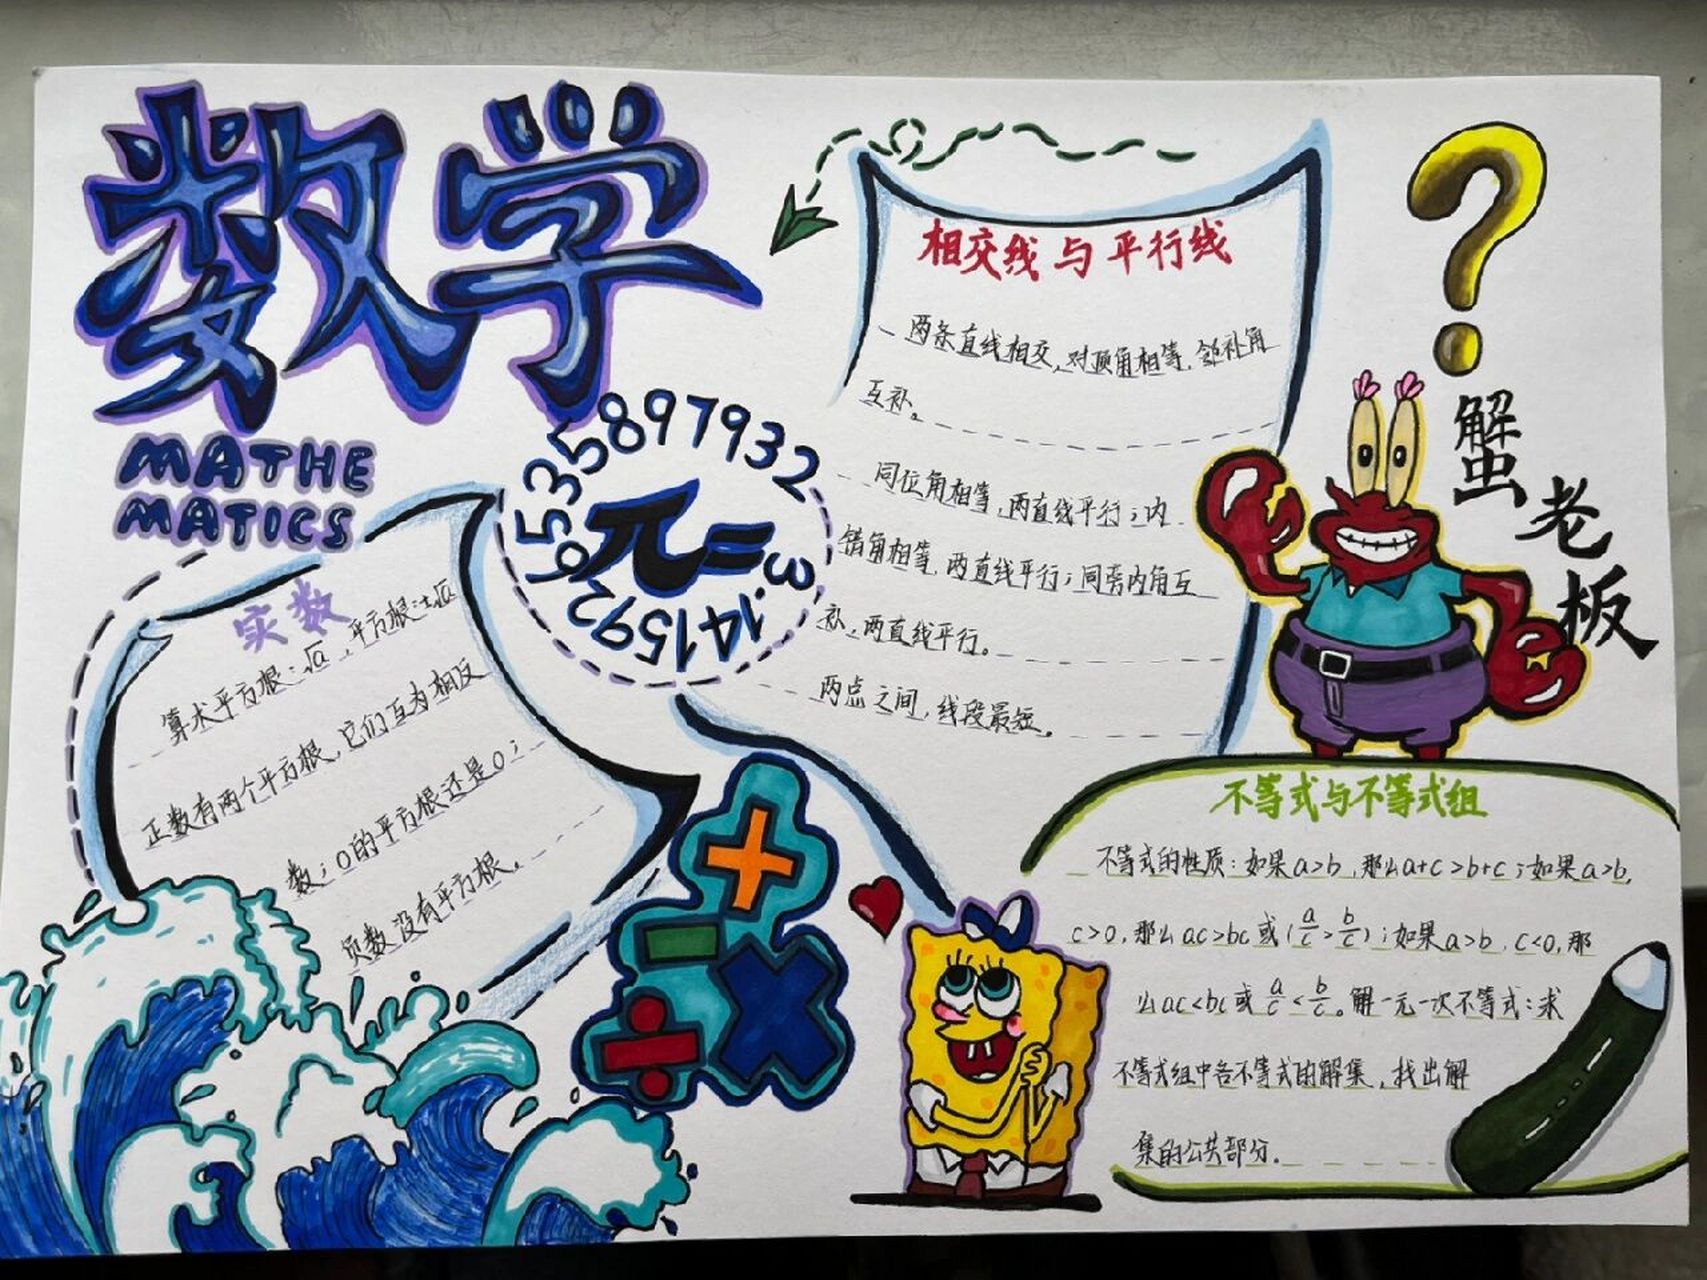 数学
MATHE
MATICS
π=3.14159265358979 32
实数
算术平方根:√a,平方根:±√a
正数有两个平方根,它们互为相反
数;0的平方根还是0;
负数没有平方根。
相交线与平行线
两条直线相交,对顶角相等,邻补角
互补。
同位角相等,两直线平行;内
错角相等,两直线平行;同旁内角互
补,两直线平行。
两点之间,线段最短。
?
蟹老板
+
-
×
÷
不等式与不等式组
不等式的性质:如果a>b,那么a+c>b+c;如果a>b,
c>0,那么ac>bc或(a/c>b/c);如果a>b,c<0,那
么ac<bc或a/c<b/c。解一元一次不等式:求
不等式组中各不等式的解集,找出解
集的公共部分。